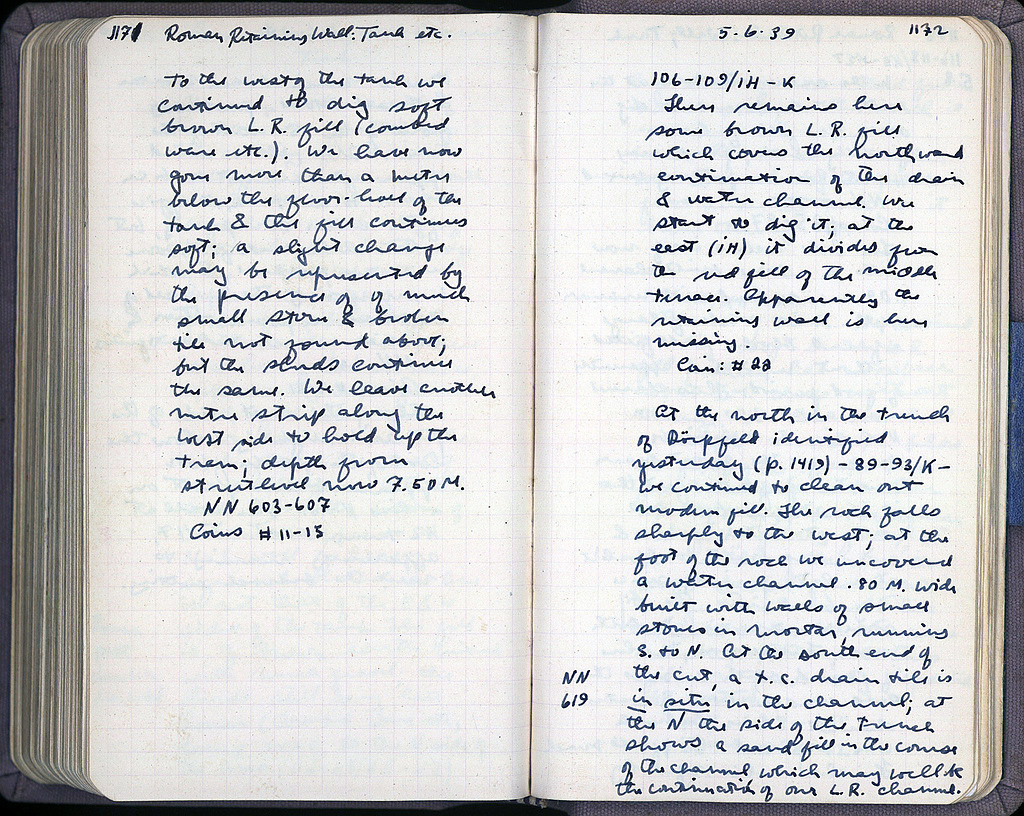 1171 Roman Retaining Wall: Tank etc.
To the west of the tank we
continued to dig soft
brown L.R. fill (combed
ware etc.). We have now
gone more than a metre
below the floor-level of the
tank & the fill continues
soft; a slight change
may be represented by
the presence of of much
small stone & broken
tile not found above;
but the sherds continue
the same. We leave another
metre strip along the
west side to hold up the
tram; depth from
street level now 7.50 M.
NN 603-607
Coins #11-15
5-6-39 1172
106-109/IH-K
There remains here
some brown L.R. fill
which covers the northward
continuation of the drain
& water channel. We
start to dig it; at the
east (IH) it divides from
the red fill of the middle
terrace. Apparently the
retaining wall is here
missing.
Coin: #22
At the north in the trench
of Dörpfeld identified
yesterday (p. 1419) - 89-93/K -
we continued to clean out
modern fill. The rock falls
sharply to the west; at the
foot of the rock we uncovered
a water channel .80 M. wide
built with walls of small
stones in mortar, running
S. to N. At the south end of
the cut, a t.c. drain tile is
NN
619
in situ in the channel; at
the N the side of the trench
shows a sand fill in the course
of the channel which may well be
the continuation of our L.R. channel.